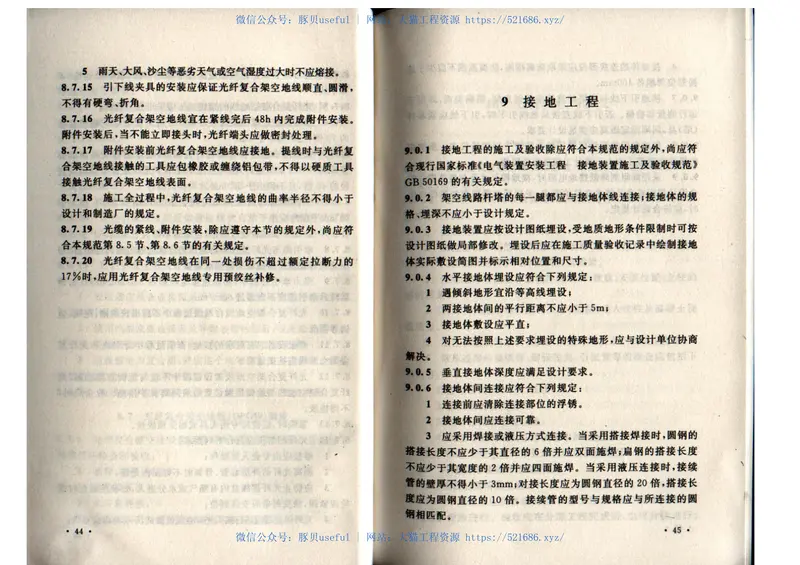 微信公众号：豚贝useful | 网站：大猫工程资源 https://521686.xyz/
5 雨天、大风、沙尘等恶劣天气或空气湿度过大时不应熔接。
8.7.15 引下线夹具的安装应保证光纤复合架空地线顺直、圆滑，
不得有硬弯、折角。
8.7.16 光纤复合架空地线宜在紧线完后 48h 内完成附件安装。
附件安装后，当不能立即接头时，光纤端头应做密封处理。
8.7.17 附件安装前光纤复合架空地线应接地。提线时与光纤复
合架空地线接触的工具应包橡胶或缠绕铝包带，不得以硬质工具
接触光纤复合架空地线表面。
8.7.18 施工全过程中，光纤复合架空地线的曲率半径不得小于
设计和制造厂的规定。
8.7.19 光缆的紧线、附件安装，除应遵守本节的规定外，尚应符
合本规范第 8.5 节、第 8.6 节的有关规定。
8.7.20 光纤复合架空地线在同一处损伤不超过额定拉断力的
17%时，应用光纤复合架空地线专用预绞丝补修。
· 44 ·
9 接地工程
9.0.1 接地工程的施工及验收除应符合本规范的规定外，尚应符
合现行国家标准《电气装置安装工程 接地装置施工及验收规范》
GB 50169 的有关规定。
9.0.2 架空线路杆塔的每一腿都应与接地体线连接；接地体的规
格、埋深不应小于设计规定。
9.0.3 接地装置应按设计图纸埋设，受地质地形条件限制时可按
设计图纸做局部修改。埋设后应在施工质量验收记录中绘制接地
体实际敷设简图并标示相对位置和尺寸。
9.0.4 水平接地体埋设应符合下列规定：
1 遇倾斜地形宜沿等高线埋设；
2 两接地体间的平行距离不应小于 5m；
3 接地体敷设应平直；
4 对无法按照上述要求埋设的特殊地形，应与设计单位协商
解决。
9.0.5 垂直接地体深度应满足设计要求。
9.0.6 接地体间连接应符合下列规定：
1 连接前应清除连接部位的浮锈。
2 接地体间应连接可靠。
3 应采用焊接或液压方式连接。当采用搭接焊接时，圆钢的
搭接长度不应少于其直径的 6 倍并应双面施焊；扁钢的搭接长度
不应少于其宽度的 2 倍并应四面施焊。当采用液压连接时，接续
管的壁厚不得小于 3mm；对接长度应为圆钢直径的 20 倍，搭接长
度应为圆钢直径的 10 倍。接续管的型号与规格应与所连接的圆
钢相匹配。
· 45 ·
微信公众号：豚贝useful | 网站：大猫工程资源 https://521686.xyz/